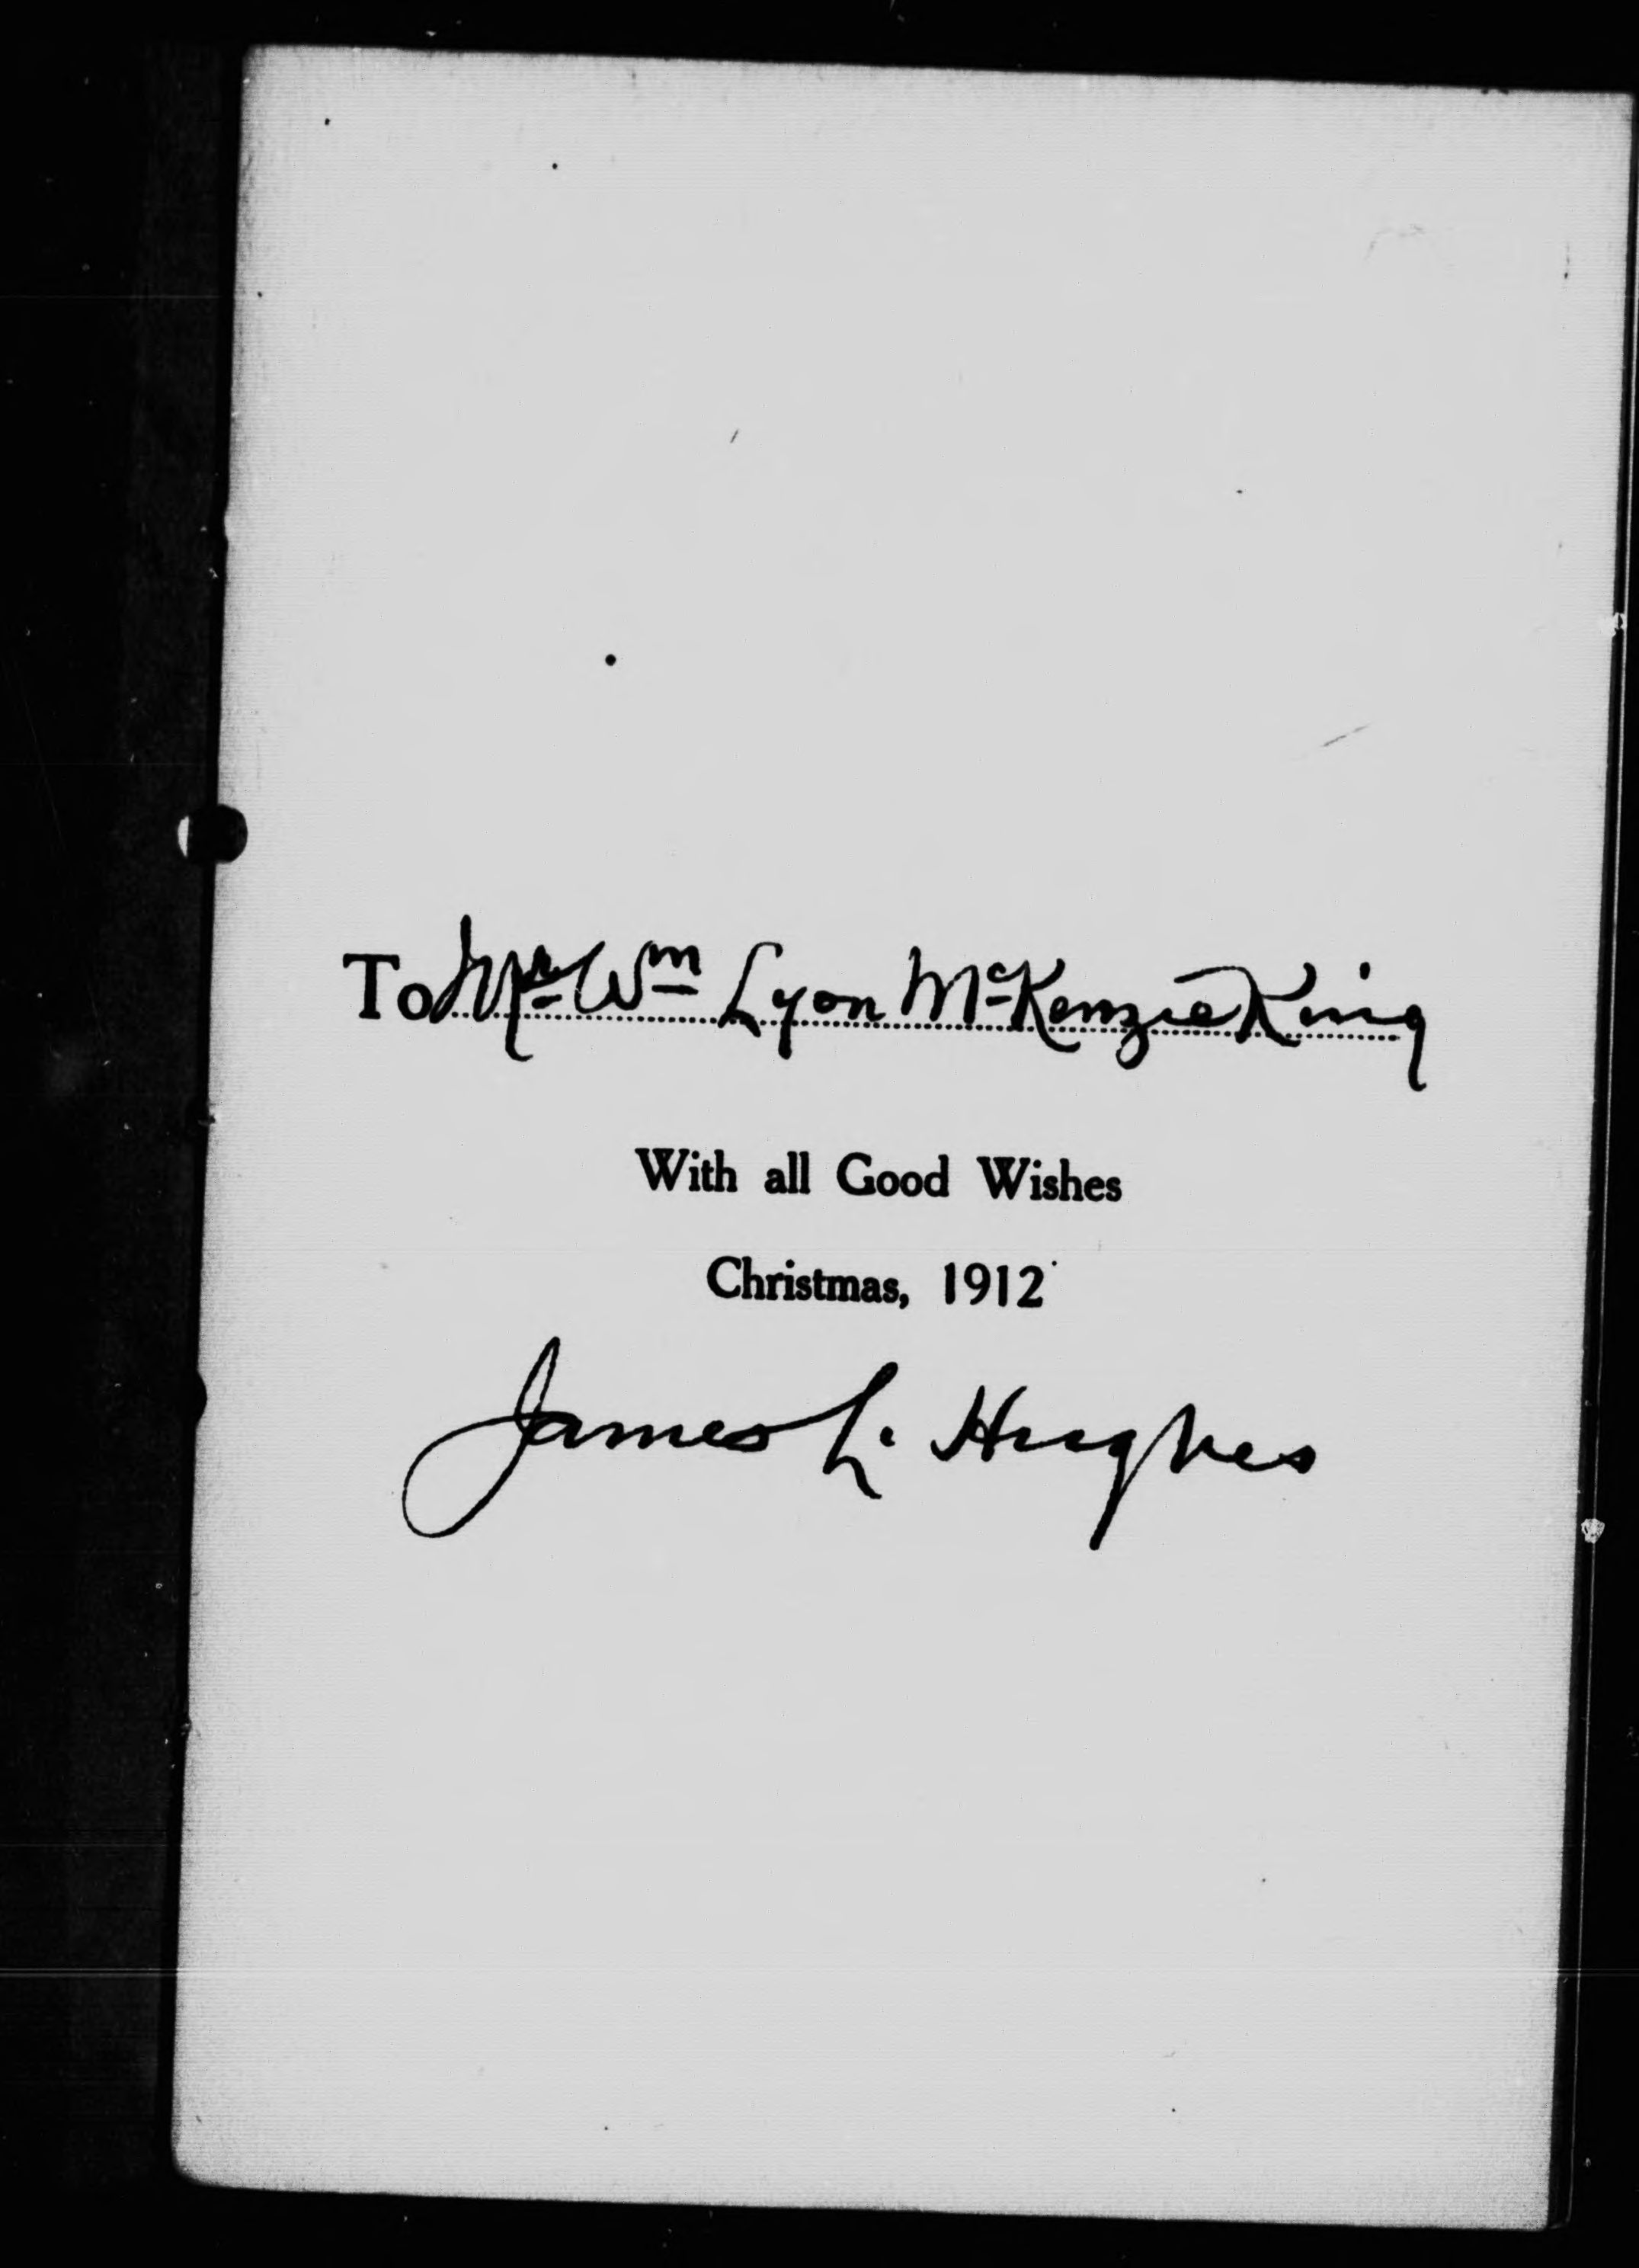 To Mr Wm Lyon McKenzie King
With all Good Wishes
Christmas, 1912
James L. Hughes